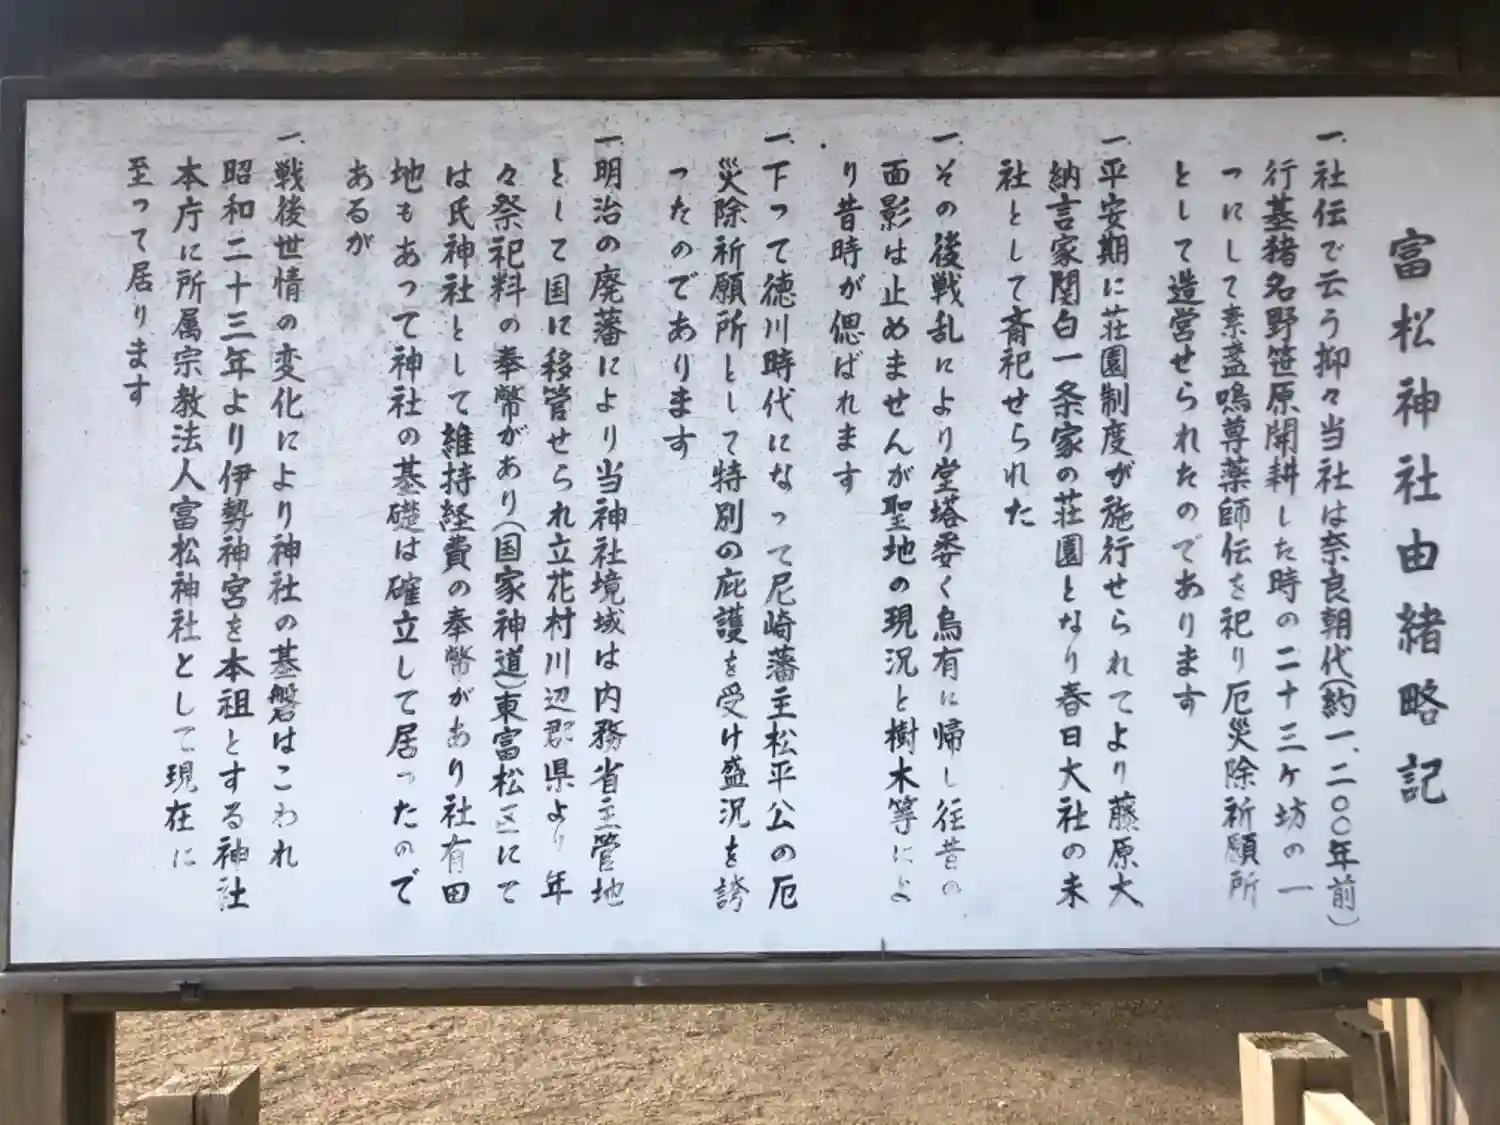 富松神社由緒略記
一、社伝で云う抑々当社は奈良朝代(約一、二〇〇年前)
行基猪名野笹原開耕した時の二十三ヶ坊の一
つにして素盞嗚尊薬師伝を祀り厄災除祈願所
として造営せられたのであります
一、平安期に荘園制度が施行せられてより藤原大
納言家関白一条家の荘園となり春日大社の末
社として斎祀せられた
一、その後戦乱により堂塔悉く烏有に帰し往昔の
面影は止めませんが聖地の現況と樹木等によ
り昔時が偲ばれます
一、下って徳川時代になって尼崎藩主松平公の厄
災除祈願所として特別の庇護を受け盛況を誇
ったのであります
一、明治の廃藩により当神社境域は内務省主管地
として国に移管せられ立花村川辺郡県より年
々祭祀料の奉幣があり(国家神道)東富松区にて
は氏神社として維持経費の奉幣があり社有田
地もあって神社の基礎は確立して居ったので
あるが
一、戦後世情の変化により神社の基盤はこわれ
昭和二十三年より伊勢神宮を本祖とする神社
本庁に所属宗教法人富松神社として現在に
至って居ります